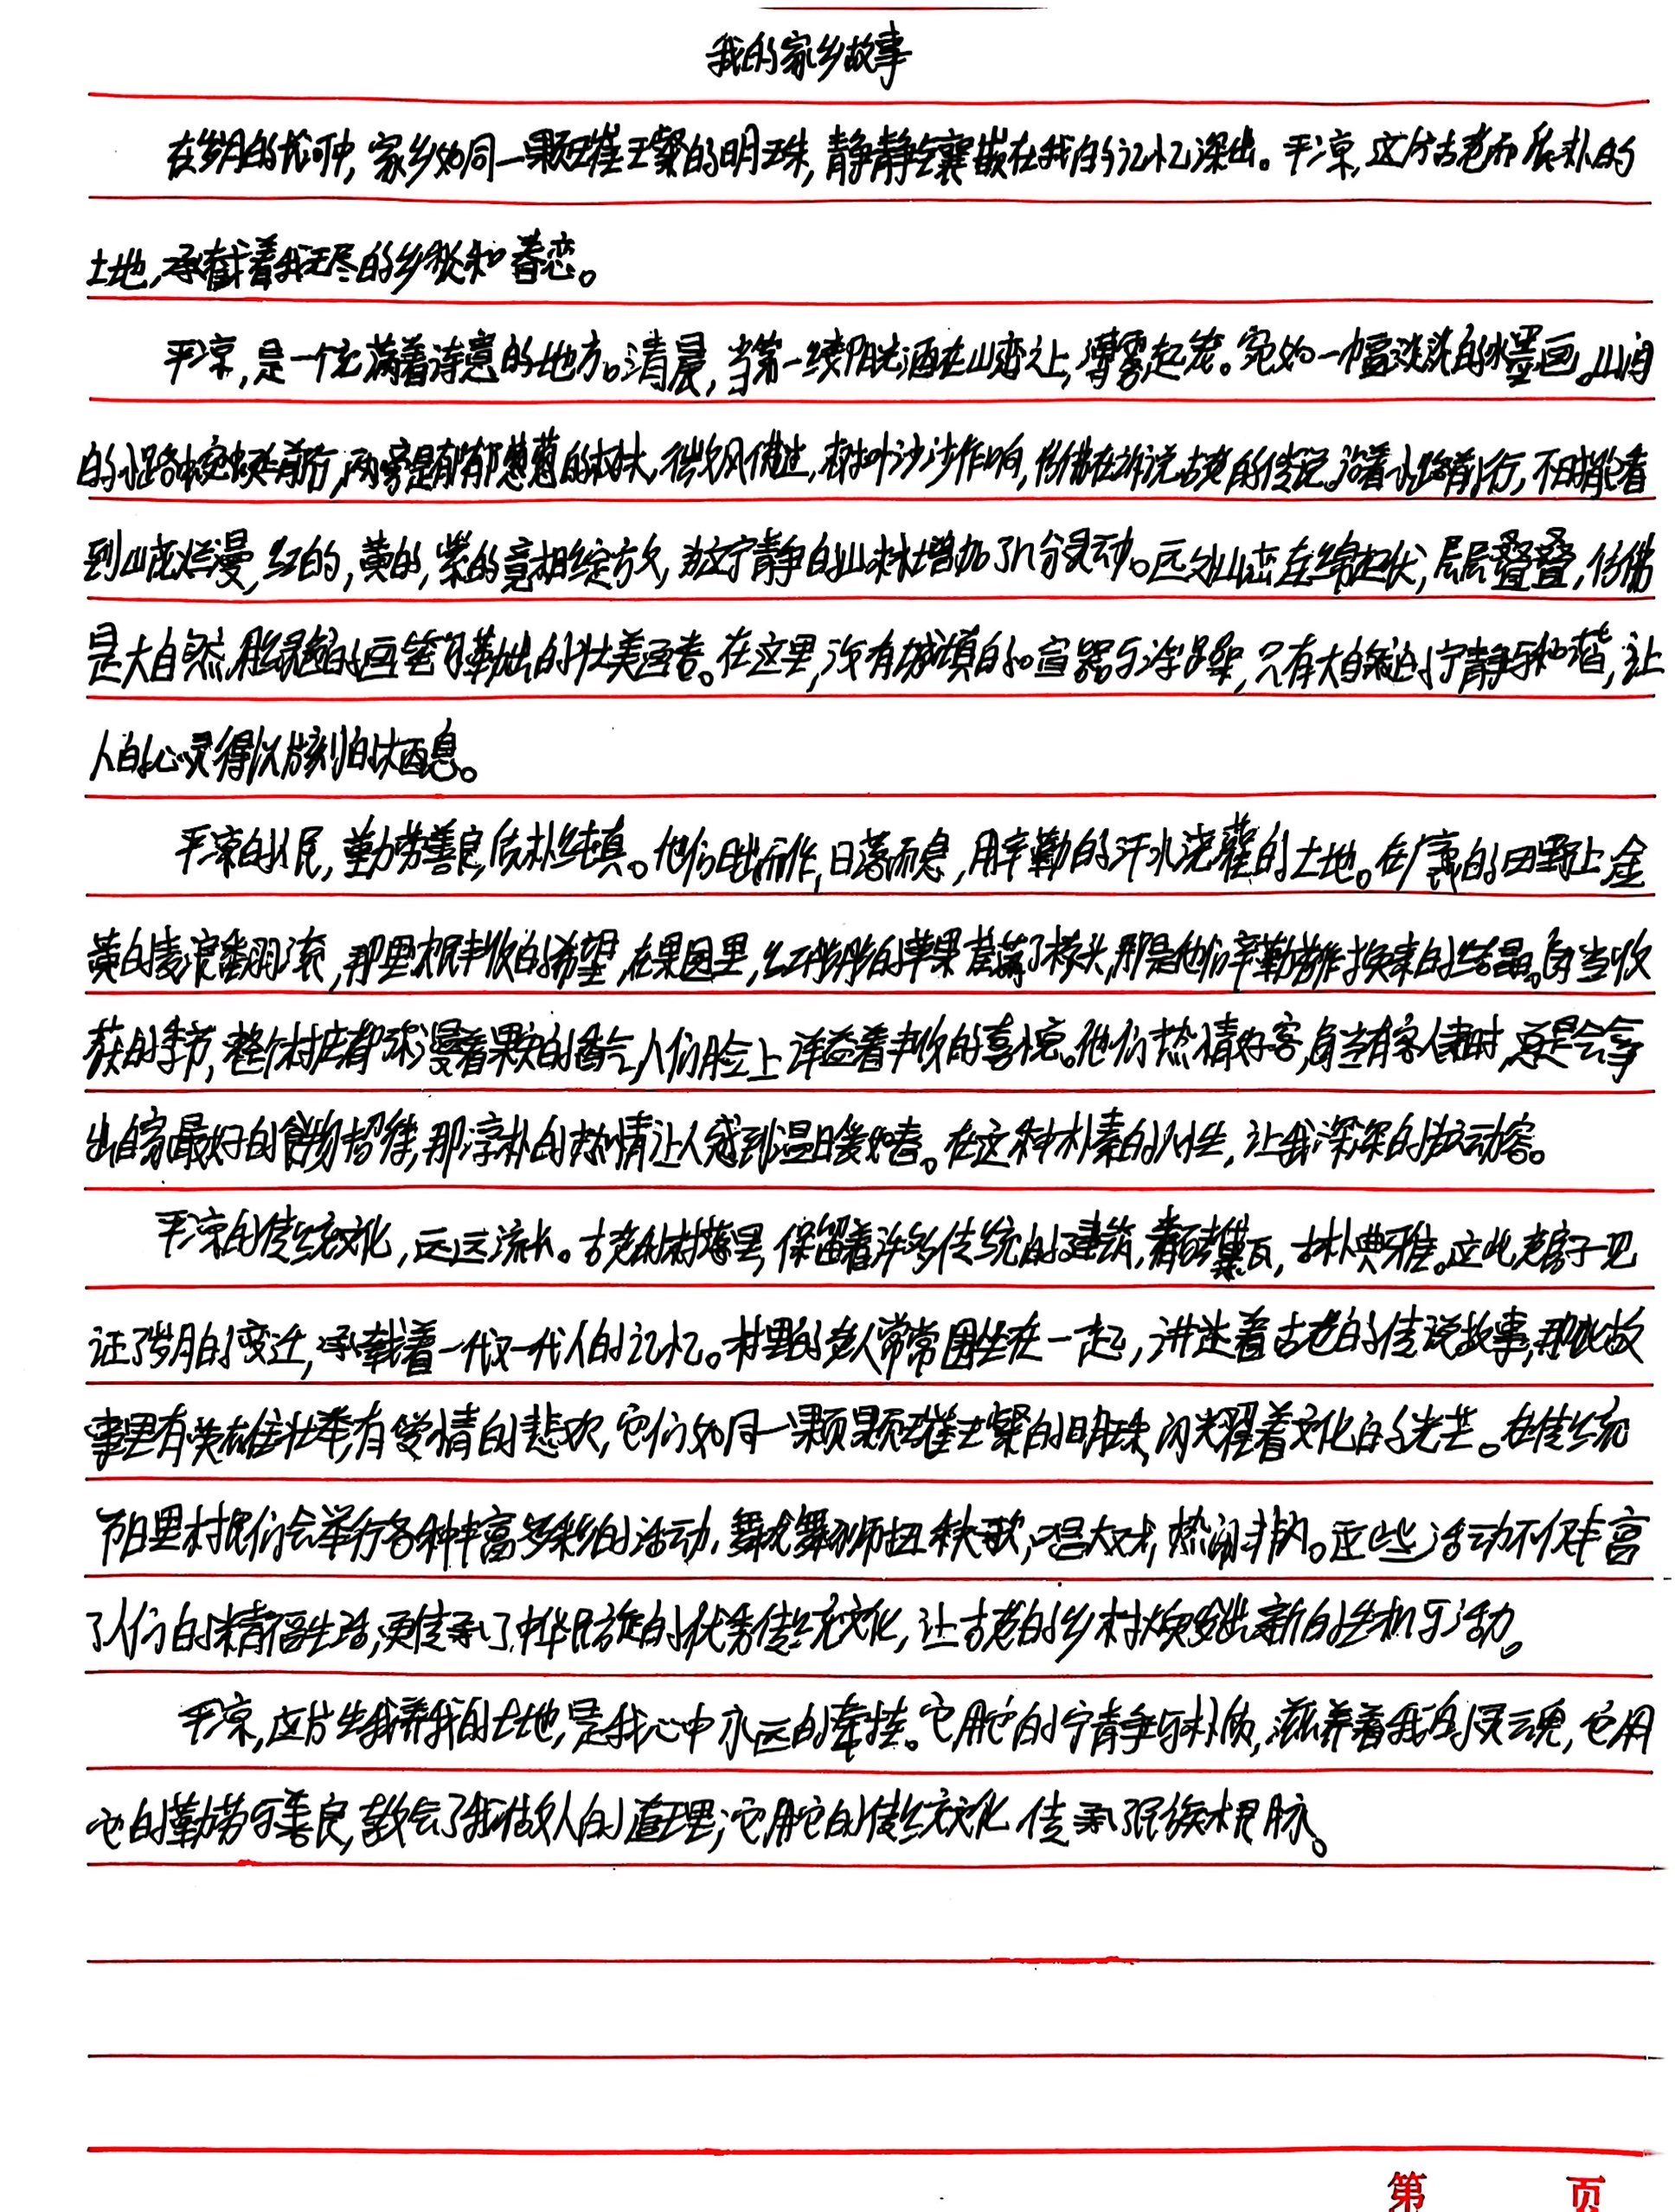 我的家乡故事
在岁月的长河中,家乡如同一颗璀璨的明珠,静静镶嵌在我的记忆深处。平凉,这片古老而质朴的
土地,承载着我无尽的乡愁和眷恋。
平凉,是一个充满着诗意的地方。清晨,当第一缕阳光洒在山峦之上,薄雾起笼。宛如一幅淡淡的水墨画。山间
的小路蜿蜒前行,两旁是郁郁葱葱的树木,微风拂过,树叶沙沙作响,仿佛在诉说古老的传说。沿着小路前行,不时能看
到山花烂漫,红的,黄的,紫的竞相绽放,为这宁静的山林增加了几分灵动。远处山峦连绵起伏,层层叠叠,仿佛
是大自然用绿色的画笔勾勒出的壮美画卷。在这里,没有城镇的喧嚣与浮躁,只有大自然的宁静与和谐,让
人的心灵得以片刻的栖息。
平凉的人民,勤劳善良,质朴纯真。他们日出而作,日落而息,用辛勤的汗水浇灌的土地。在广袤的田野上,金
黄的麦浪翻滚,那里丰收的希望,在果园里,红彤彤的苹果挂满了枝头,那是他们辛勤劳作换来的结晶。每当收
获的季节,整个村庄都弥漫着果实的香气,人们脸上洋溢着丰收的喜悦。他们热情好客,每当有客人来时,总是会拿
出自家最好的食物招待,那淳朴的热情让人感到温暖如春。在这种朴素的人性,让我深深的为之动容。
平凉的传统文化,远远流长。古老的村落里,保留着许多传统的建筑,青砖黛瓦,古朴典雅。这些老房子见
证了岁月的变迁,承载着一代又一代人的记忆。村里的老人常常围坐在一起,讲述着古老的传说故事,那些故
事里有英雄壮举,有爱情的悲欢,它们如同一颗颗璀璨的明珠,闪耀着文化的光芒。在传统
节日里村民们会举行各种丰富多彩的活动,舞龙舞狮扭秧歌,唱大戏,热闹非凡。这些活动不仅丰富
了人们的精神生活,更传承了中华民族的优秀传统文化,让古老的乡村焕发出新的生机与活力。
平凉,这片生我养我的土地,是我心中永远的牵挂。它用它的宁静与朴质,滋养着我的灵魂,它用
它的勤劳与善良,教会了我做人的道理;它用它的传统文化传承了民族根脉。
第 页